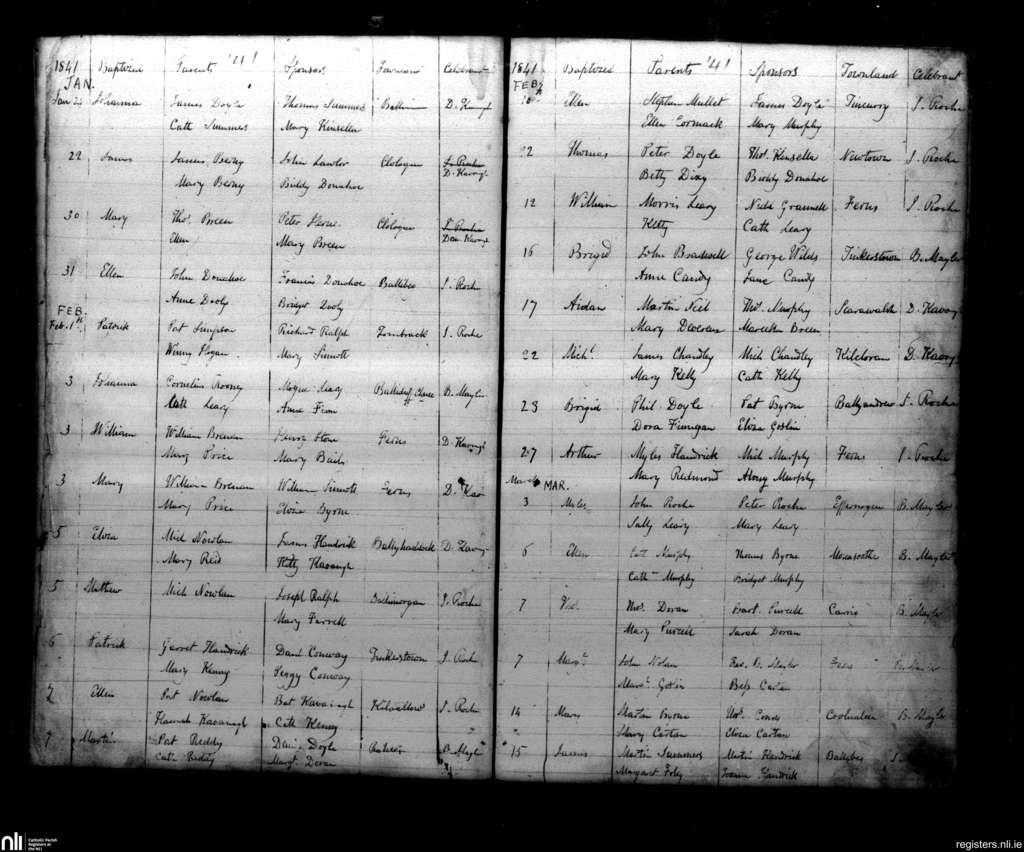 1841 Baptized Parents '41' Sponsors Townland Celebrant
JAN.
Jan 24 Johanna James Doyle Thomas Summers D. Kavagh
Cath Summers Mary Kinsella
22 James James Berny John Lawlor Clologue J. Roche
Mary Berny Biddy Donahoe D. Kavagh
30 Mary Thos. Breen Peter Clologue J. Roche
Ellen Mary Breen Dan Kavagh
31 Ellen John Donahoe Francis Donahoe Ballibeg J. Roche
Anne Dooly Bridget Dooly
FEB.
Feb. 1st Patrick Pat Simpson Richard Ralph Tombrack J. Roche
Winny Hogan Mary Sinnott
3 Johanna Cornelius Mogue Leary B. Mayler
Cath Leary Anne Finn
3 William William Brenan Henry Stone Ferns D. Kavagh
Mary Price Mary
3 Mary William Brenan William Sinnott Ferns D. Kav
Mary Price Eliza Byrne
5 Eliza Mich Nowlan James Handrick Ballyhaddock D. Kavagh
Mary Reid Kitty Kavanagh
5 Mathew Mich Nowlan Joseph Ralph J. Roche
Mary Farrell
6 Patrick Garret Handrick Daniel Conway Tinkerstown J. Roche
Mary Kenny Peggy Conway
7 Ellen Pat Nowlan Bat Kavanagh J. Roche
Hannah Kavanagh Cath Kenny
7 Martin Pat Reddy Denis Doyle B. Mayler
Cath Reddy Margt. Doran
1841 Baptized Parents '41' Sponsors Townland Celebrant
FEB
10 Ellen Stephen Mullet James Doyle Tincurry J. Roche
Ellen Cormack Mary Murphy
22 Thomas Peter Doyle Thos. Kinsella Newtown J. Roche
Betty Dixy Biddy Donahoe
12 William Morris Leary Nick Grannell Ferns J. Roche
Kitty Cath Leary
16 Brigid John Bradwell George Webb Tinkerstown B. Mayler
Anne Candy Jane Candy
17 Aidan Martin Neil Thos. Murphy Scarawalsh D. Kavagh
Mary Devereux Breen
22 Michl. James Chandley Mich Chandley Kilcloran D. Kavagh
Mary Kelly Cath Kelly
23 Brigid Phil. Doyle Pat Byrne Ballyandrew J. Roche
Dora Finnigan Eliza Goslin
27 Arthur Myles Handrick Mich Murphy Ferns J. Roche
Mary Redmond Murphy
March MAR.
3 Myles John Roche Peter Roche Effernogue B. Mayler
Sally Leary Mary Leary
6 Ellen Murphy Thomas Byrne B. Mayler
Cath Murphy Bridget Murphy
7 Thos. Thos. Doran Bart. Purcell B. Mayler
Mary Purcell Sarah Doran
7 Margt. John Nolan Ferns
Margt. Goslin Bess Cartan
14 Mary Martin Byrne B. Mayler
Mary Cartan Eliza Cartan
15 James Martin Summers Martin Handrick Ballibeg
Margaret Foley Joanna Handrick
nli
Catholic Parish
Registers at
the NLI
registers.nli.ie